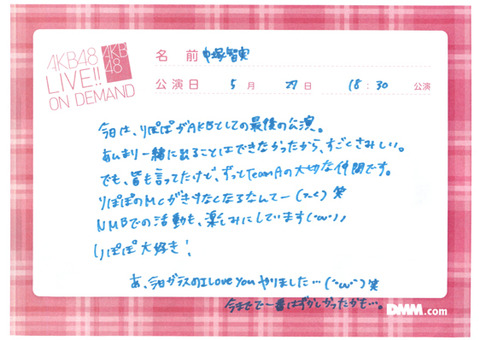 AKB48
LIVE!!
ON DEMAND
AKB
48
名 前 中塚智実
公演日 5 月 27 日 18:30 公演
今日は、りぽぽがAKBとしての最後の公演。
あんまり一緒に出ることはできなかったから、すごくさみしい。
でも、皆も言ってたけど、ずっとteamAの大切な仲間です。
りぽぽのMCがきけなくなるなんてー(>_<) 笑
NMBでの活動も、楽しみにしています(´ω`)♪
りぽぽ大好き!
あ、今日ガラスのI Love You やりました…(´ω`) 笑
今までで一番はずかしかったかも…。
DMM.com